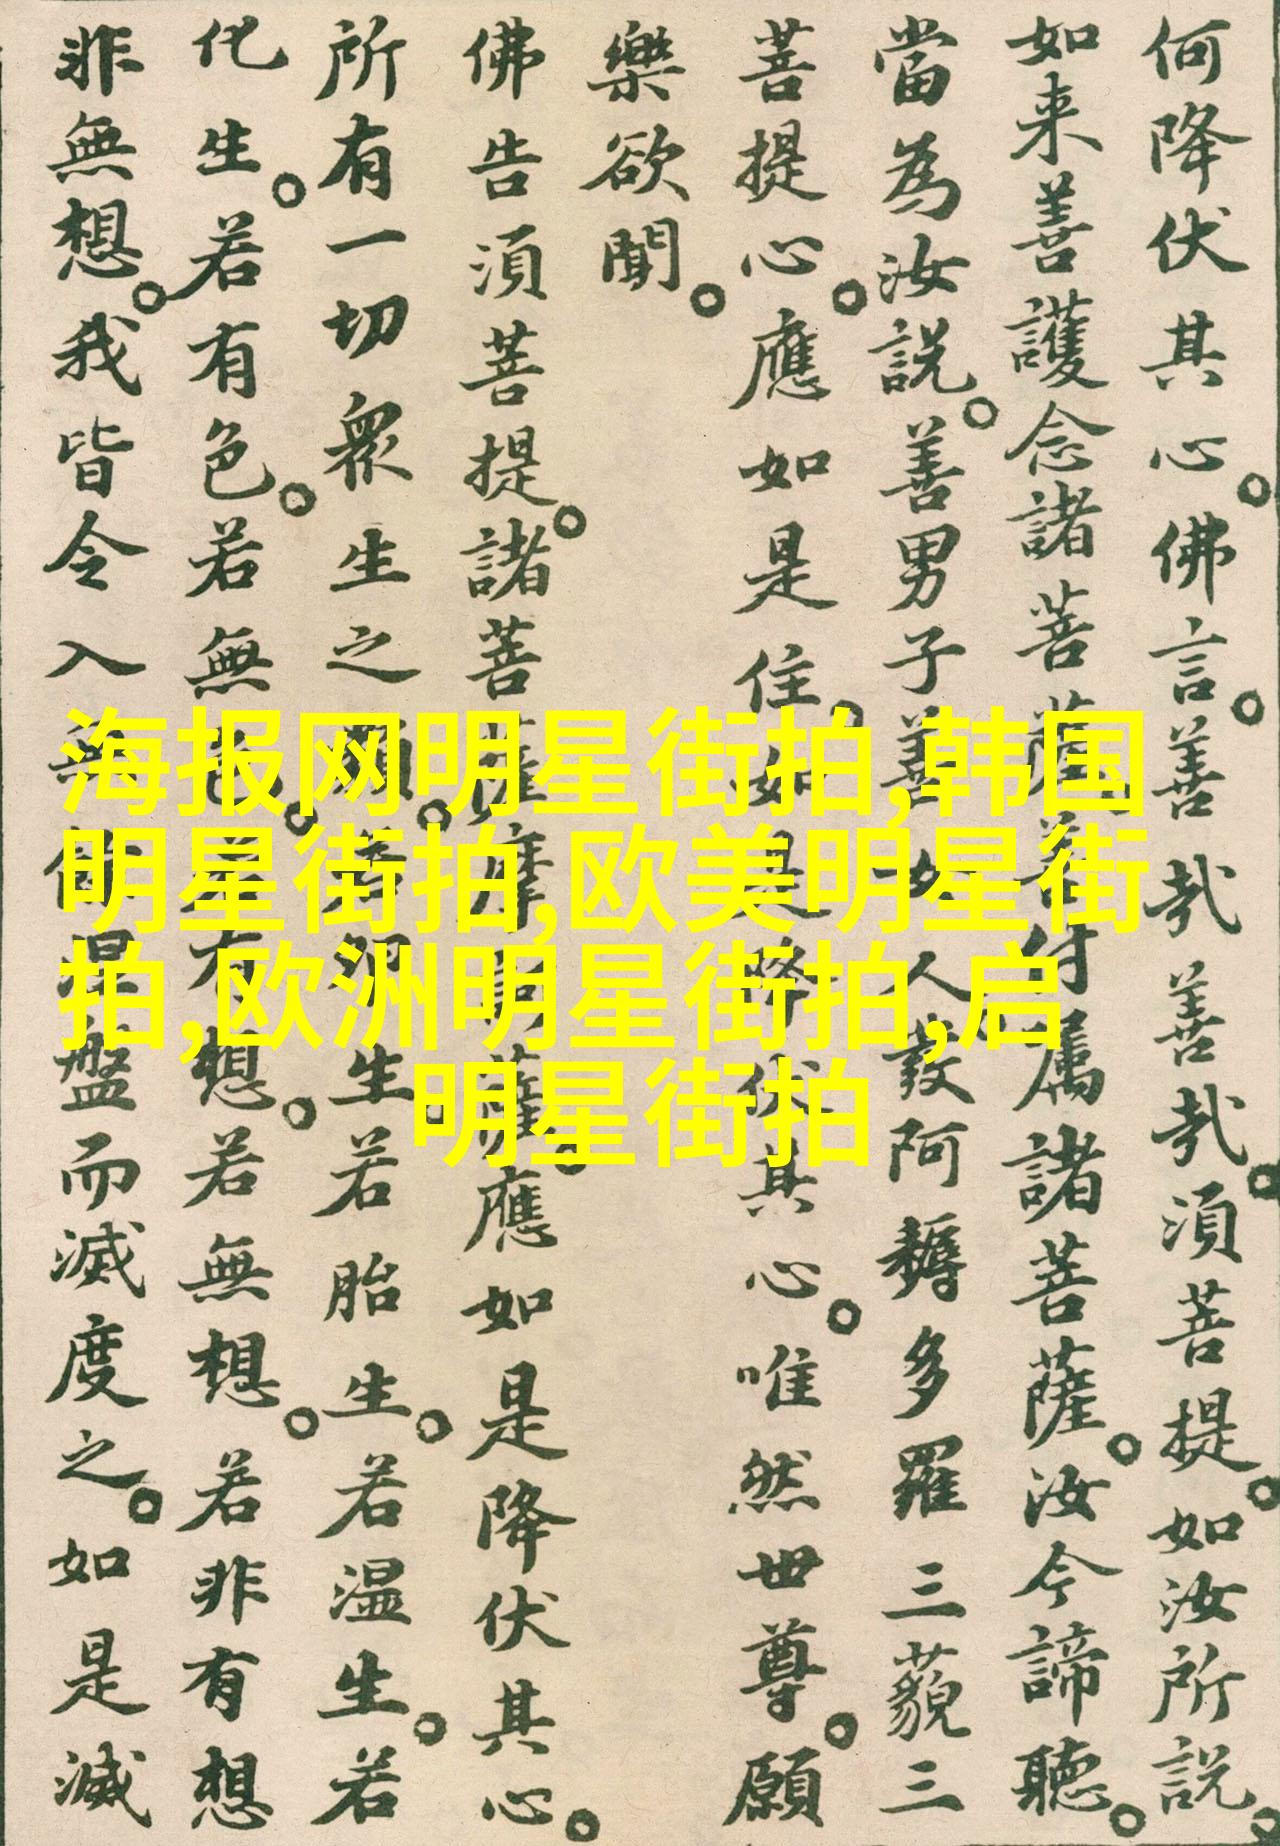 何降伏其心。佛言。善哉善哉。須菩提。如汝所説。
如来善護念諸菩薩。善付属諸菩薩。汝今諦聽。
當為汝説。善男子善女人。發阿耨多羅三藐三
菩提心。應如是住。如是降伏其心。唯然世尊。願
樂欲聞。
佛告須菩提。諸菩薩摩訶薩。應如是降伏其心。
所有一切衆生之類。若卵生。若胎生。若温生。若
化生。若有色。若無色。若有想。若無想。若非有想
非無想。我皆令入無餘涅盤而滅度之。如是滅
海报网明星街拍,韩国
明星街拍,欧美明星街
拍,欧洲明星街拍,启
明星街拍